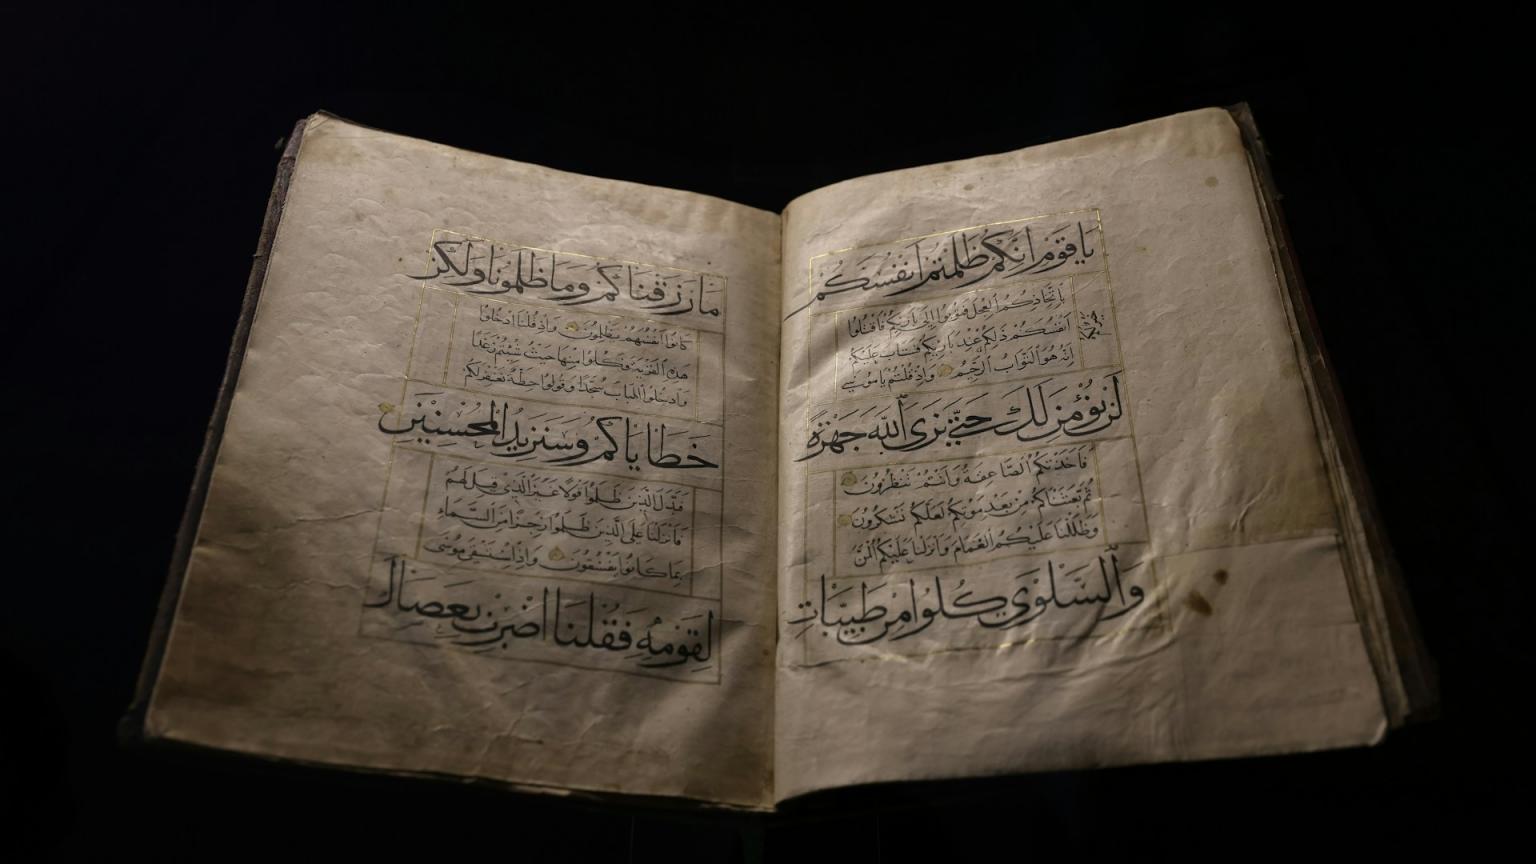 يا قوم إنكم ظلمتم أنفسكم
باتخاذكم العجل فتوبوا إلى بارئكم فاقتلوا
أنفسكم ذلكم خير لكم عند بارئكم فتاب عليكم
إنه هو التواب الرحيم وإذ قلتم يا موسى
لن نؤمن لك حتى نرى الله جهرة
فأخذتكم الصاعقة وأنتم تنظرون
ثم بعثناكم من بعد موتكم لعلكم تشكرون
وظللنا عليكم الغمام وأنزلنا عليكم المن
والسلوى كلوا من طيبات
ما رزقناكم وما ظلمونا ولكن
كانوا أنفسهم يظلمون وإذ قلنا ادخلوا
هذه القرية فكلوا منها حيث شئتم رغدا
وادخلوا الباب سجدا وقولوا حطة نغفر لكم
خطاياكم وسنزيد المحسنين
فبدل الذين ظلموا قولا غير الذي قيل لهم
فأنزلنا على الذين ظلموا رجزا من السماء
بما كانوا يفسقون وإذ استسقى موسى
لقومه فقلنا اضرب بعصاك